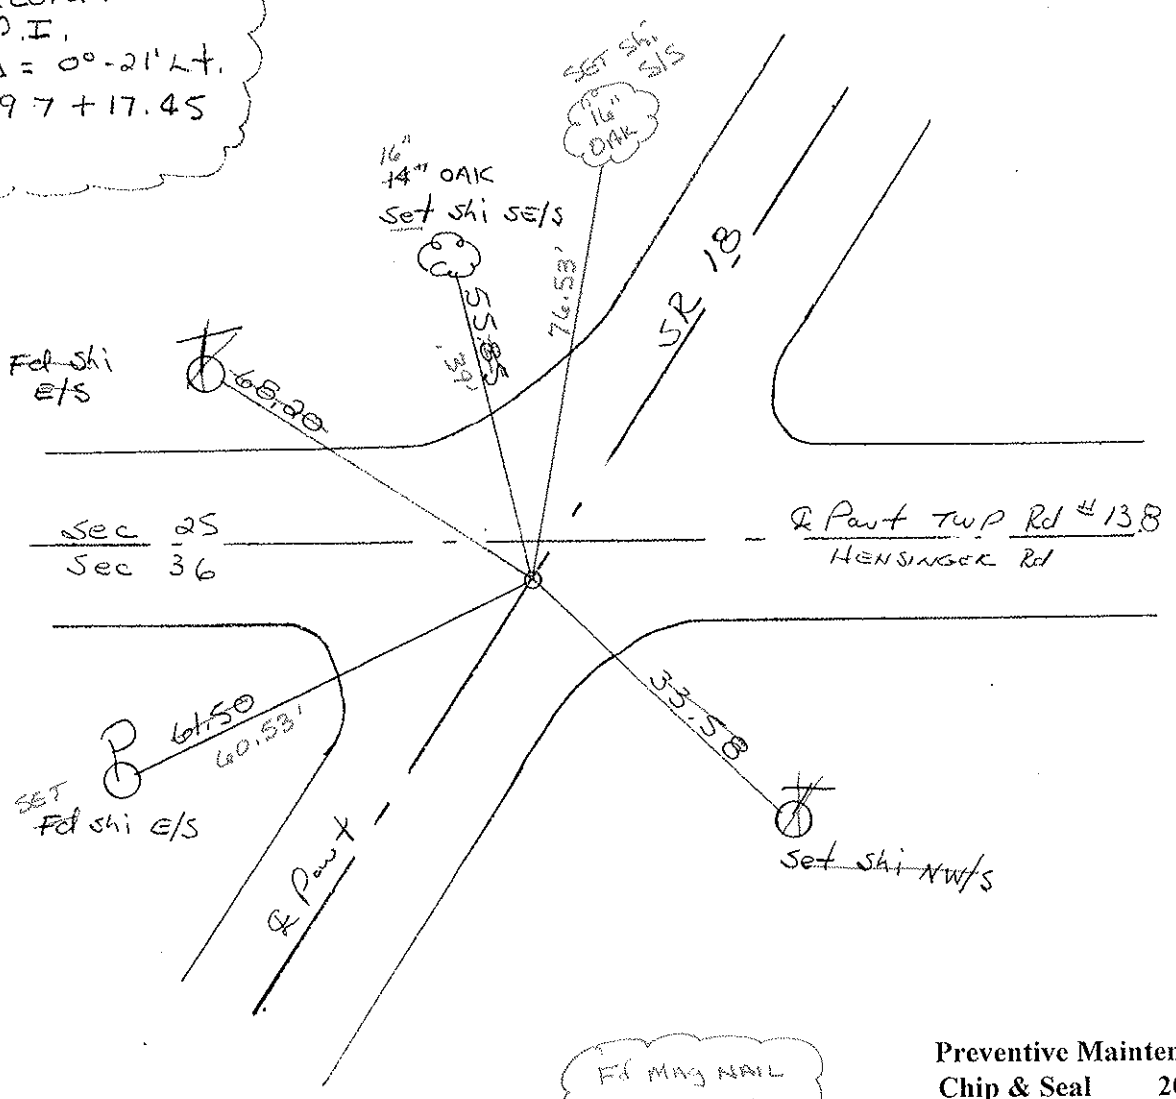 P.I.
Δ = 0°-21' Lt.
97+17.45
SET Shi
S/S
16"
OAK
16"
14" OAK
Set Shi SE/S
55.85
.39'
76.53'
SR 18
Fd Shi
E/S
68.20
Sec 25
Sec 36
℄ Pavt TWP Rd #138
HENSINGER Rd
61.50
60.53'
P
SET
Fd Shi E/S
33.58
Set Shi NW/S
℄ Pavt
Fd MAG NAIL
Preventive Mainten
Chip & Seal 20